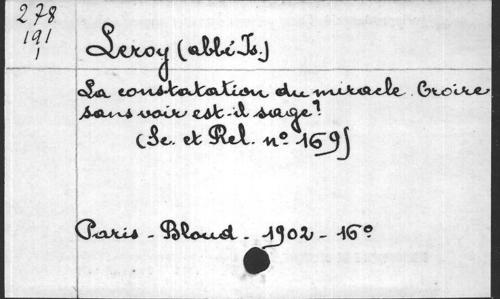 278
191
1
Leroy (abbé Is.)
La constatation du miracle. Croire
sans voir est-il sage?
(Sc. et Rel. nº 169)
Paris - Bloud - 1902 - 16º